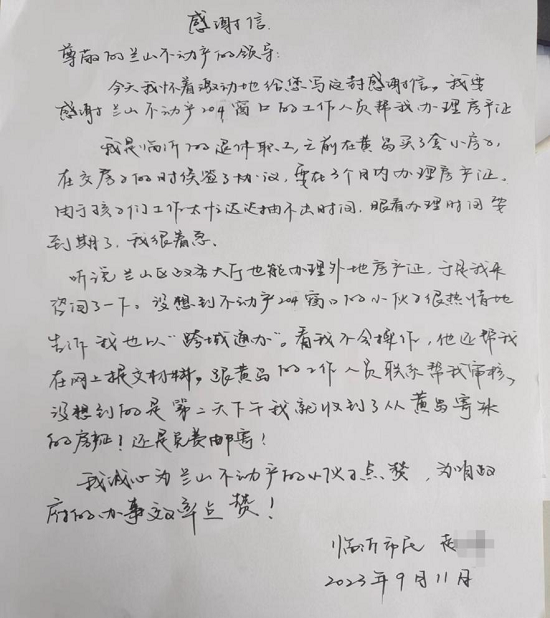 感谢信
尊敬的兰山不动产的领导:
今天我怀着激动地给您写这封感谢信。我要
感谢兰山不动产204窗口的工作人员帮我办理房产证
我是临沂的退休职工,之前在黄岛买了套小房子,
在交房子的时候签了协议,要在3个月内办理房产证。
由于孩子们工作太忙迟迟抽不出时间,眼看办理时间要
到期了,我很着急。
听说兰山区政务大厅也能办理外地房产证,于是我来
咨询了一下。没想到不动产204窗口的小伙子很热情地
告诉我可以“跨域通办”。看我不会操作,他还帮我
在网上提交材料,跟黄岛的工作人员联系帮我审核,
没想到的是第二天下午我就收到了从黄岛寄来
的房证!还是免费邮寄!
我诚心为兰山不动产的小伙子点赞,为咱政
府的办事效率点赞!
临沂市民
2023年9月11日